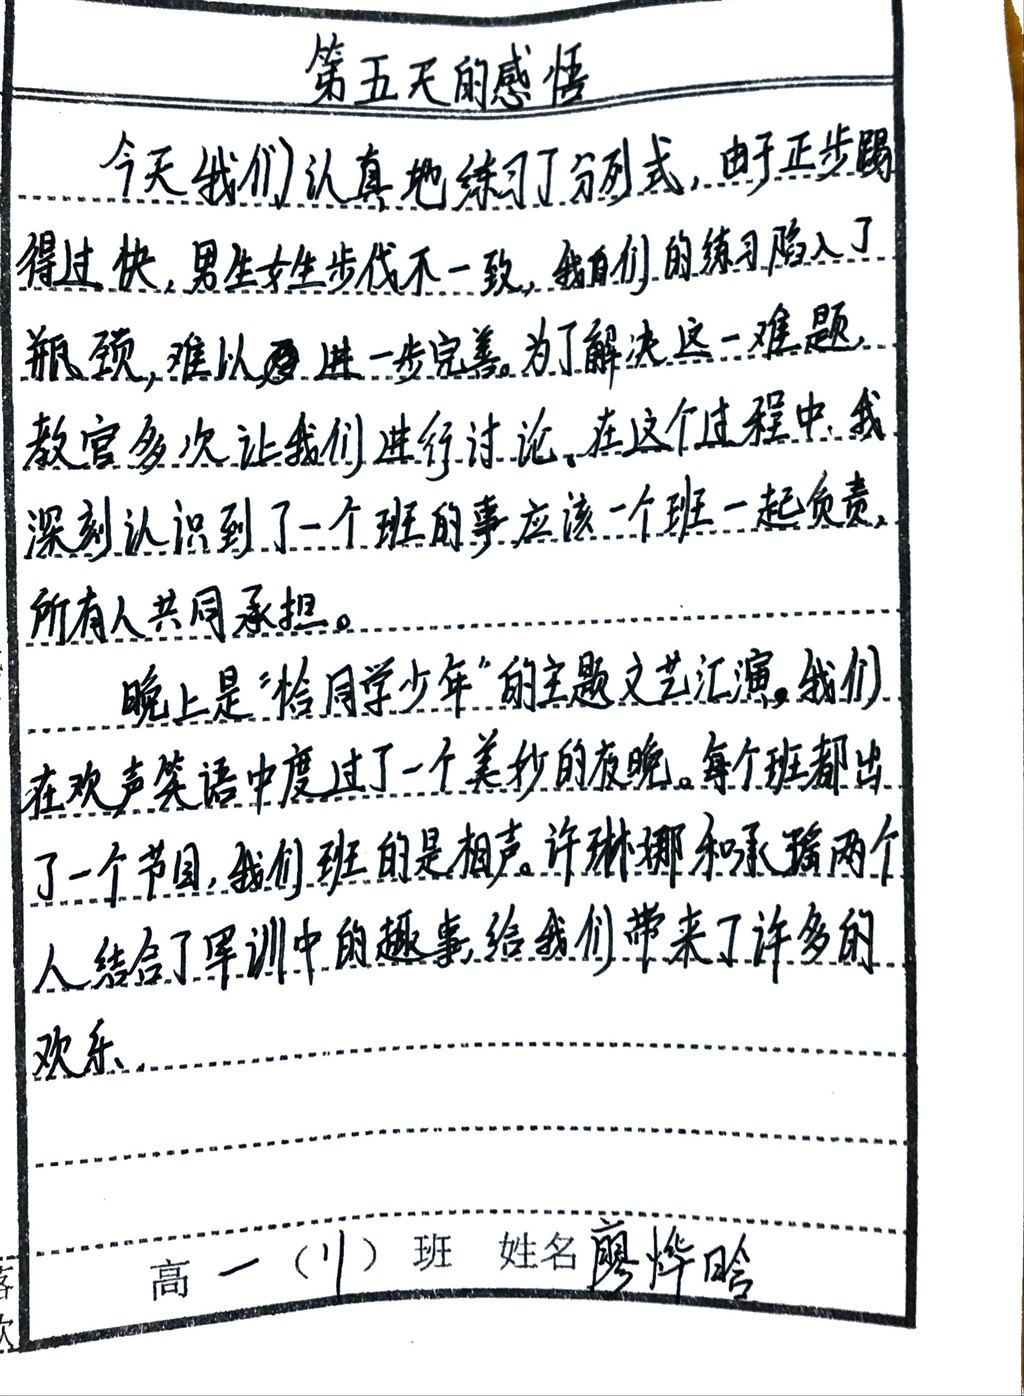 第五天的感悟
今天我们认真地练习了分列式，由于正步踢
得过快，男生女生步伐不一致，我们的练习陷入了
瓶颈，难以进一步完善。为了解决这一难题，
教官多次让我们进行讨论。在这个过程中，我
深刻认识到了一个班的事应该一个班一起负责，
所有人共同承担。
晚上是“恰同学少年”的主题文艺汇演。我们
在欢声笑语中度过了一个美抄的夜晚。每个班都出
了一个节目，我们班的是相声。许琳娜和承瑶两个
人结合了军训中的趣事，给我们带来了许多的
欢乐。
高一（11）班 姓名廖烨晗
落
款